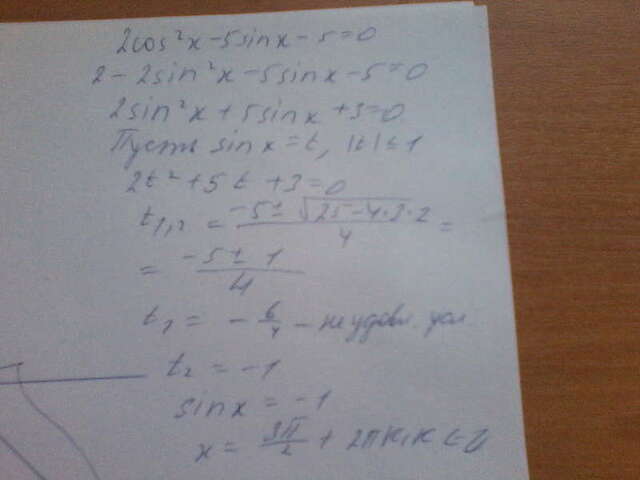 2cos²x - 5sinx - 5 = 0
2 - 2sin²x - 5sinx - 5 = 0
2sin²x + 5sinx + 3 = 0
Пусть sinx = t, |t| ≤ 1
2t² + 5t + 3 = 0
t₁,₂ = (-5 ± √(25 - 4·3·2))/4 =
= (-5 ± 1)/4
t₁ = -6/4 - не удовл. усл.
t₂ = -1
sinx = -1
x = 3π/2 + 2πK, K ∈ Z